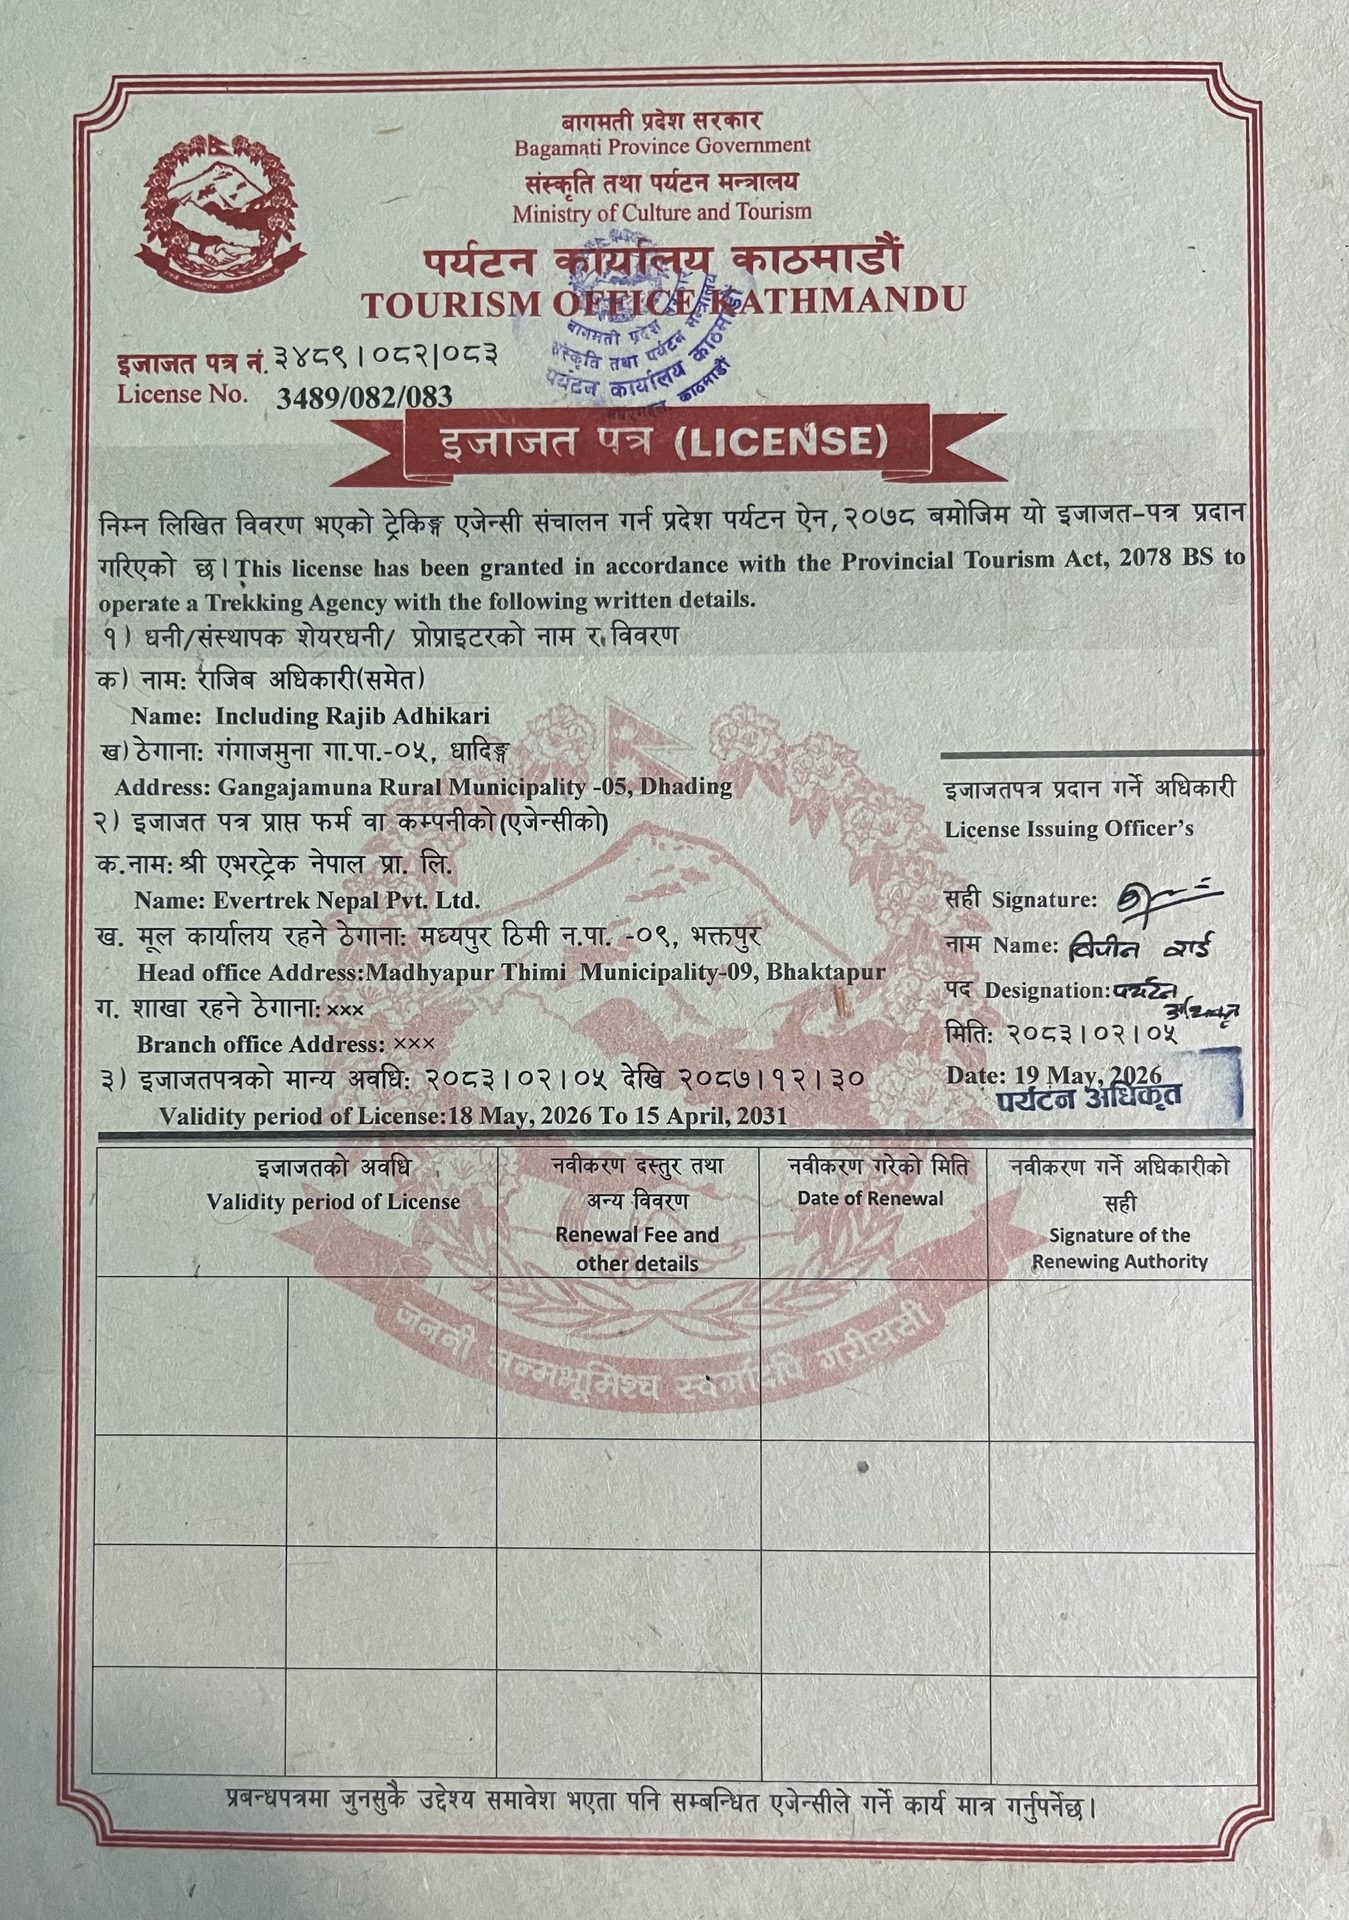 बागमती प्रदेश सरकार
Bagamati Province Government
संस्कृति तथा पर्यटन मन्त्रालय
Ministry of Culture and Tourism
पर्यटन कार्यालय काठमाडौं
TOURISM OFFICE KATHMANDU
बागमती प्रदेश
संस्कृति तथा पर्यटन मन्त्रालय
पर्यटन कार्यालय काठमाडौं
काठमाडौं
इजाजत पत्र नं. ३४८९।०८२|०८३
License No. 3489/082/083
इजाजत पत्र (LICENSE)
निम्न लिखित विवरण भएको ट्रेकिङ्ग एजेन्सी संचालन गर्न प्रदेश पर्यटन ऐन, २०७८ बमोजिम यो इजाजत-पत्र प्रदान
गरिएको छ। This license has been granted in accordance with the Provincial Tourism Act, 2078 BS to
operate a Trekking Agency with the following written details.
१) धनी/संस्थापक शेयरधनी/ प्रोप्राइटरको नाम र विवरण
क) नाम: राजिब अधिकारी(समेत)
Name: Including Rajib Adhikari
ख) ठेगाना: गंगाजमुना गा.पा.-०५, धादिङ्ग
Address: Gangajamuna Rural Municipality -05, Dhading
२) इजाजत पत्र प्राप्त फर्म वा कम्पनीको (एजेन्सीको)
क.नाम: श्री एभरट्रेक नेपाल प्रा. लि.
Name: Evertrek Nepal Pvt. Ltd.
ख. मूल कार्यालय रहने ठेगाना: मध्यपुर ठिमी न.पा. -०९, भक्तपुर
Head office Address:Madhyapur Thimi Municipality-09, Bhaktapur
ग. शाखा रहने ठेगाना: ×××
Branch office Address: ×××
३) इजाजतपत्रको मान्य अवधि: २०८३।०२।०५ देखि २०८७।१२।३०
Validity period of License:18 May, 2026 To 15 April, 2031
इजाजतपत्र प्रदान गर्ने अधिकारी
License Issuing Officer's
सही Signature:
नाम Name:
पद Designation: पर्यटन
अधिकृत
मिति: २०८३।०२।०५
Date: 19 May, 2026
पर्यटन अधिकृत
इजाजतको अवधि
Validity period of License
नवीकरण दस्तुर तथा
अन्य विवरण
Renewal Fee and
other details
नवीकरण गरेको मिति
Date of Renewal
नवीकरण गर्ने अधिकारीको
सही
Signature of the
Renewing Authority
जननी जन्मभूमिश्च स्वर्गादपि गरीयसी
प्रबन्धपत्रमा जुनसुकै उद्देश्य समावेश भएता पनि सम्बन्धित एजेन्सीले गर्ने कार्य मात्र गर्नुपर्नेछ।